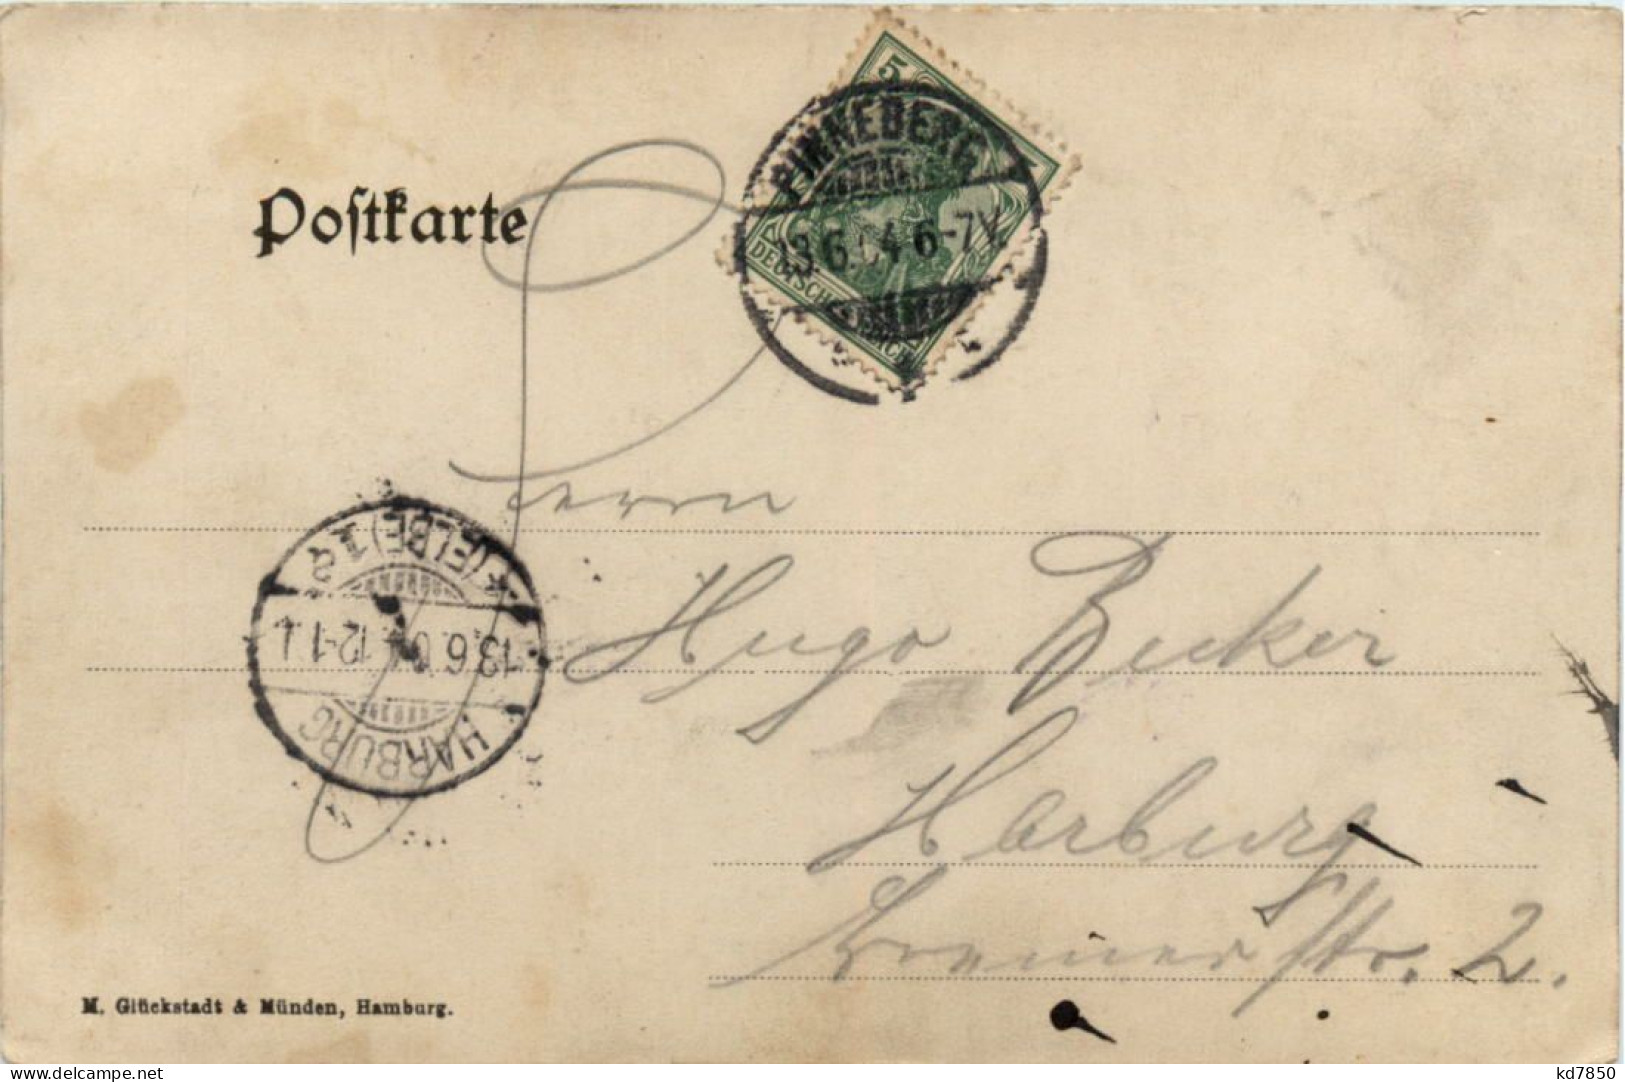 Postkarte
5
PINNEBERG
13.6.04 6-7V.
DEUTSCHES REICH
Herrn
Hugo
Harburg
Bremer Str. 2.
HARBURG
13.6.04.12-1
(ELBE) 1
M. Glückstadt & Münden, Hamburg.
kd7850